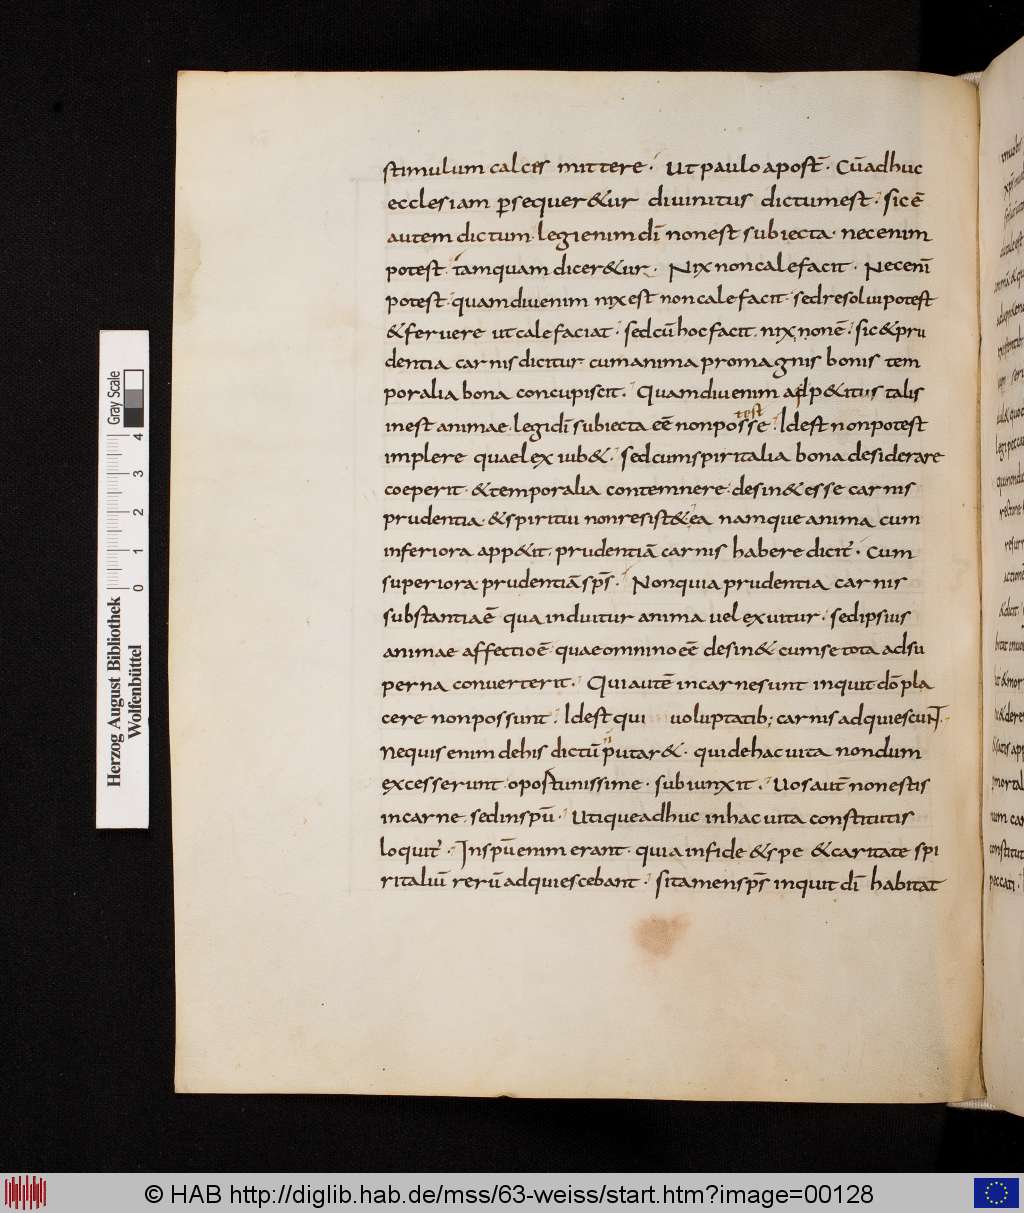 stimulum calces mittere · Ut paulo apost̄ · Cū adhuc
ecclesiam ꝑsequer&ur diuinitus dictum est · sic ē
autem dictum · legi enim dī non est subiecta · nec enim
potest · tamquam dicer&ur · Nix non calefacit · Nec enī
potest · quamdiu enim nix est non calefacit · sed resolui potest
& feruere ut calefaciat · sed cū hoc facit, nix non ē · sic & pru
dentia carnis dicitur cum anima pro magnis bonis tem
poralia bona concupiscit · Quamdiu enim adp&itus talis
inest animae · legi dī subiecta eē non posse test · Id est non potest
implere quae lex iub& · sed cum spiritalia bona desiderare
coeperit · & temporalia contemnere · desin& esse carnis
prudentia · & spiritui non resist& ea namque anima cum
inferiora app&it · prudentiā carnis habere dicit̄ · Cum
superiora prudentiā sp̄s · Non quia prudentia carnis
substantia ē qua induitur anima uel exuitur · sed ipsius
animae affectio ē · quae omnino eē desin& cum se tota ad su
perna conuerterit · Qui autē in carne sunt inquit dō pla
cere non possunt · Id est qui uoluptatib; carnis adquiescunt ·
Nequis enim de his dictū putar& · qui de hac uita nondum
excesserunt · oportunissime · subiunxit · Uos aut̄ non estis
in carne · sed in spū · Utique adhuc in hac uita constitutis
loquit̄ · In spū enim erant · quia in fide & spe & caritate spi
ritaliū rerū adquiescebant · si tamen sp̄s inquit dī habitat
Gray Scale
0 1 2 3 4
Herzog August Bibliothek
Wolfenbüttel
© HAB http://diglib.hab.de/mss/63-weiss/start.htm?image=00128